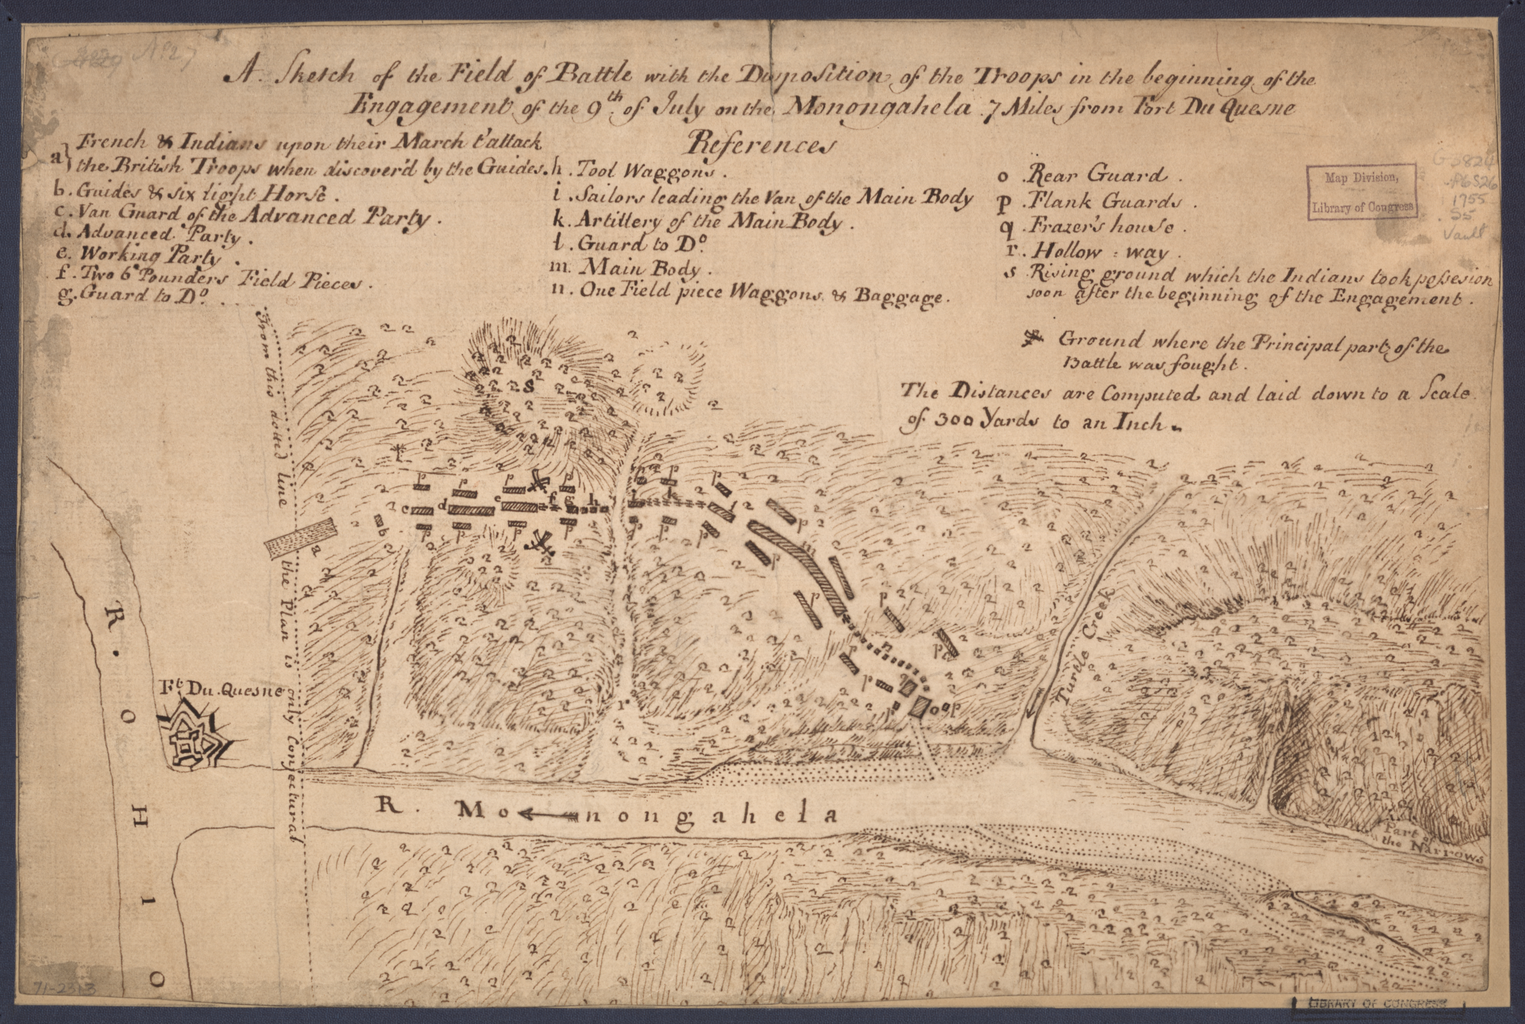 A Sketch of the Field of Battle with the Disposition of the Troops in the beginning of the
Engagement of the 9th of July on the Monongahela 7 Miles from Fort Du Quesne
References
a} French & Indians upon their March t'attack
the British Troops when discover'd by the Guides.
b. Guides & six light Horse.
c. Van Guard of the Advanced Party.
d. Advanced Party.
e. Working Party.
f. Two 6 Pounders Field Pieces.
g. Guard to Do.
h. Tool Waggons.
i. Sailors leading the Van of the Main Body
k. Artillery of the Main Body.
l. Guard to Do.
m. Main Body.
n. One Field piece Waggons & Baggage.
o Rear Guard.
p Flank Guards.
q Frazer's house.
r. Hollow : way.
s Rising ground which the Indians took possesion
soon after the beginning of the Engagement.
Ground where the Principal part of the
Battle was fought.
The Distances are Computed and laid down to a Scale
of 300 Yards to an Inch.
Map Division,
Library of Congress
1755
Vault
From this doted line
the Plan is
only Conjectural
R. OHIO
Ft. Du Quesne
R. Monongahela
Turtle Creek
Part of
the Narrows
71-2313
LIBRARY OF CONGRESS